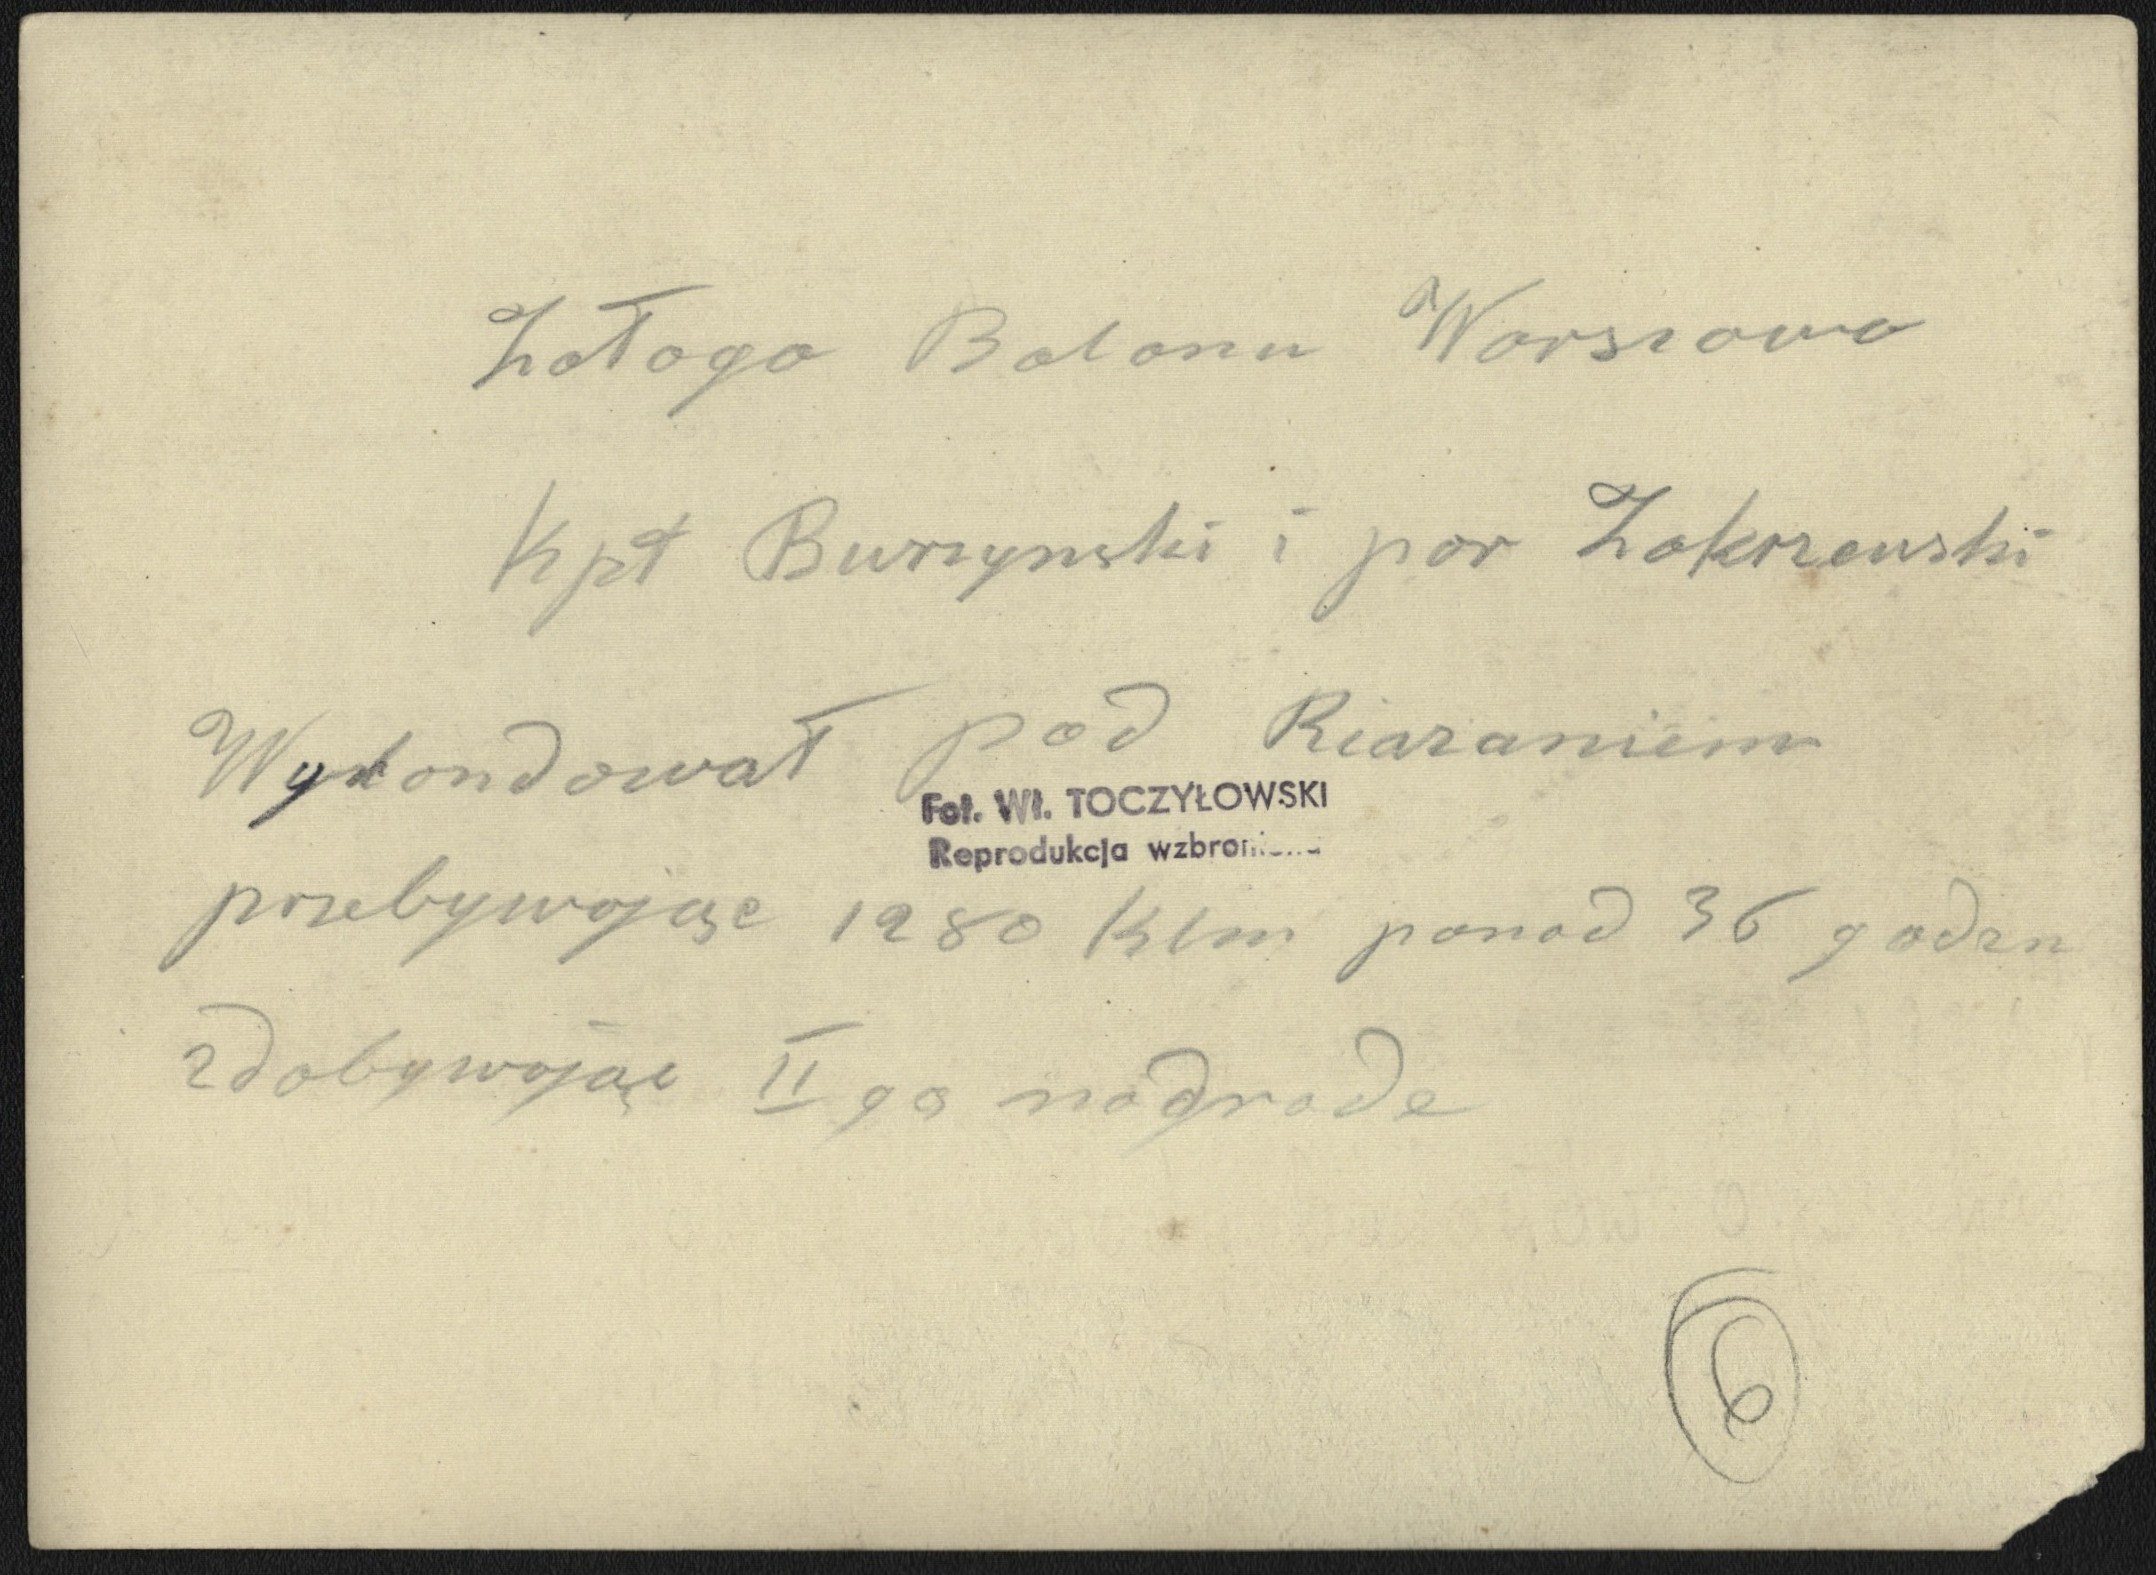 Załoga Balonu Warszawa
Kpt Burzynski i por Zakrzewski
Wylondował pod Riazaniem
Fot. Wł. TOCZYŁOWSKI
Reprodukcja wzbroniona
przebywając 1280 Klm ponad 36 godzn
zdobywając II go nadgrode
6